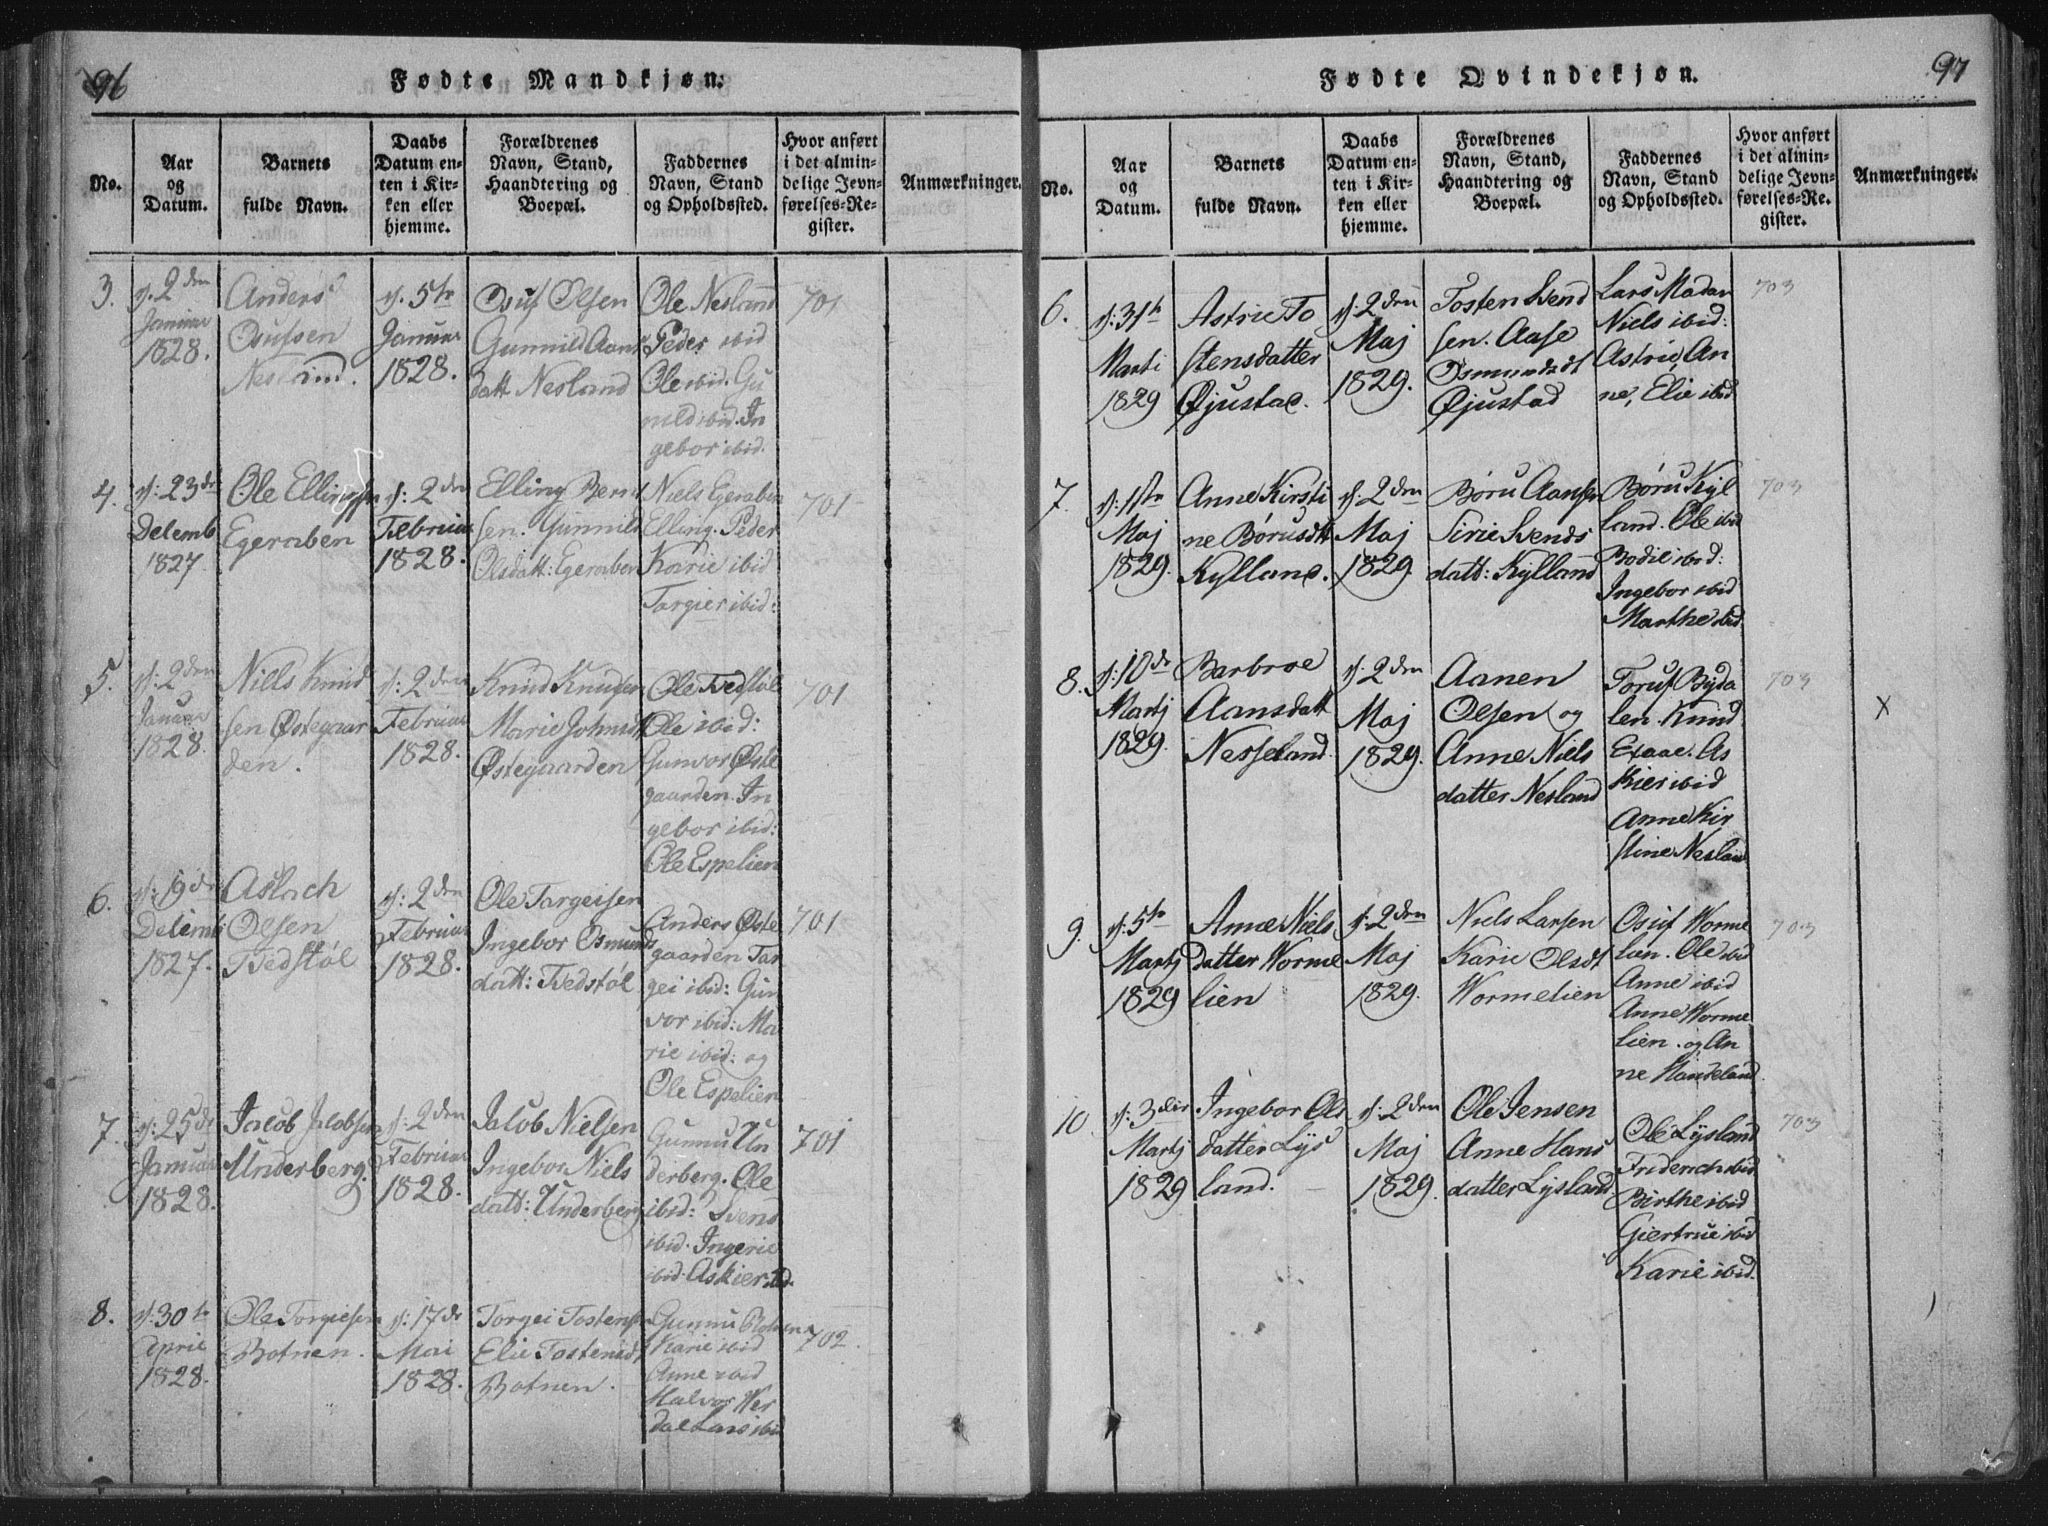 96
Fødte Mandkjøn.
No.
Aar
og
Datum.
Barnets
fulde Navn.
Daabs
Datum en-
ten i Kir-
ken eller
hjemme.
Forældrenes
Navn, Stand,
Haandtering og
Boepæl.
Faddernes
Navn, Stand
og Opholdssted.
Hvor anført
i det almin-
delige Jevn-
førelses-Re-
gister.
Anmærkninger.
3.
d. 2den
Januar
1828.
Anders
Osufsen
Nesland.
d. 5te
Januar
1828.
Osuf Olsen
Gunnild Aans
datt Nesland
Ole Nesland
Peder ibid
Ole ibid. Gu
nild ibid. In
gebor ibid.
701
4.
d: 23de
Decemb
1827.
Ole Ellingsen
Egeraben
d: 2den
Februar
1828.
Elling Bernt
sen. Gunnild
Olsdatt: Egeraben
Niels Egeraben
Elling. Peder
Karie ibid
Targier ibid:
701
5.
d: 2den
Januar
1828.
Niels Knud
sen Østegaar
den.
d: 2den
Februar
1828.
Knud Knudsen
Marie Johnsdt
Østegaarden
Ole Tvedstøl
Ole ibid:
Gunvor Øste
gaarden. In
gebor ibid:
Ole Espelien
701
6.
d: 19de
Decemb
1827.
Aslach
Olsen
Tvedstøl
d: 2den
Februar
1828.
Ole Targeisen
Ingebor Osmunds
datt: Tvedstøl
Anders Øste
gaarden Tar
gei ibid: Gun
vor ibid: Ma
rie ibid: og
Ole Espelien
701
7.
d: 25de
Januar
1828.
Jacob Jacobsen
Underberg.
d: 2den
Februar
1828.
Jacob Nielsen
Ingebor Niels
datt: Underberg
Gunnu Un
derberg. Ole
ibid: Svend
ibid. Ingerie
ibid. Askier ibid.
701
8.
d: 30te
April
1828.
Ole Torgiesen
Botnen.
d: 17de
Mai
1828.
Torgei Tostensen
Elie Tostensdt
Botnen.
Gunnu Botnen
Karie ibid
Anne ibid
Halvor Wer
dal Lars ibid
702.
97
Fødte Qvindekjøn.
No.
Aar
og
Datum.
Barnets
fulde Navn.
Daabs
Datum en-
ten i Kir-
ken eller
hjemme.
Forældrenes
Navn, Stand,
Haandtering og
Boepæl.
Faddernes
Navn, Stand
og Opholdssted.
Hvor anført
i det almin-
delige Jevn-
førelses-Re-
gister.
Anmærkninger.
6.
d: 31te
Marti
1829
Astrie To
stensdatter
Øjustad.
d: 2den
Maj
1829.
Tosten Svend
sen. Aase
Osmundsdt
Øjustad
Lars
Niels ibid:
Astrie, An
ne, Elie ibid
703
7.
d: 1ste
Maj
1829.
Anne Kirsti
ne Børusdtt
Kylland.
d: 2den
Maj
1829.
Børu Aansen
Sirie Svends
datt: Kylland
Børu Kyl
land. Ole ibid
Bodil ibid:
Ingebor ibid
Marthe ibid.
703
8.
d: 10de
Martj
1829.
Barbroe
Aansdatt
Nesseland.
d: 2den
Maj
1829.
Aanen
Olsen og
Anne Niels
datter Nesland
Toruf Byda
len. Knud
As
kier ibid
Anne Kir
stine Nesland
703
X
9.
d: 5te
Martj
1829
Anne Niels
datter Worme
lien
d: 2den
Maj
1829.
Niels Larsen
Karie Olsdt
Wormelien
Osuf Worme
lien. Ole ibid
Anne ibid
Anne Worme
lien. og An
ne Haudeland.
703
10.
d: 3die
Martj
1829
Ingebor Ols
datter Lys
land.
d: 2den
Maj
1829.
Ole Jensen
Anne Hans
datter Lysland
Ole Lysland
Friderich ibid
Birthe ibid
Giertrue ibid
Karie ibid.
703